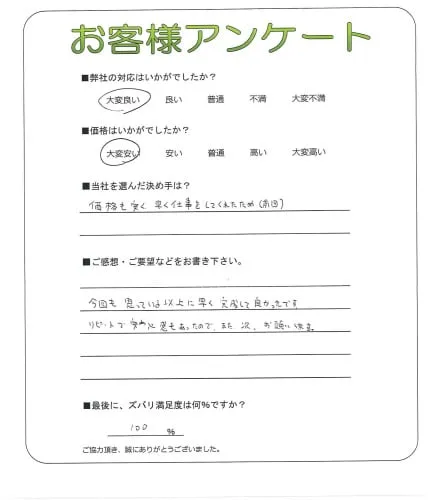 お客様アンケート
■弊社の対応はいかがでしたか？
大変良い 良い 普通 不満 大変不満
■価格はいかがでしたか？
大変安い 安い 普通 高い 大変高い
■当社を選んだ決め手は？
価格も安く 早く仕事をしてくれたため(前回)
■ご感想・ご要望などをお書き下さい。
今回も 思っていた以上に早く 完成して良かったです。
リピートで 安心 もあったので、また 次、お願い
■最後に、ズバリ満足度は何％ですか？
100 ％
ご協力頂き、誠にありがとうございました。